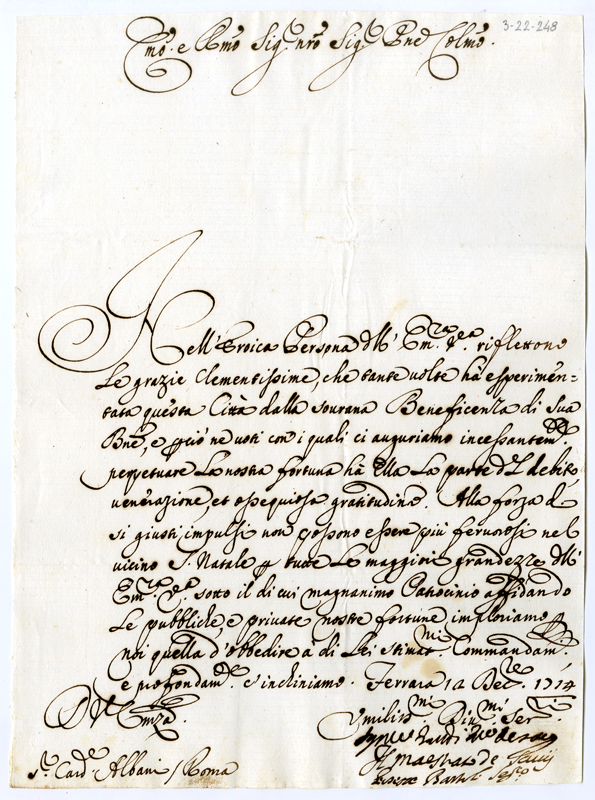 3-22-248
Emo. e Rmo Sig.r nrõ Sig.r Pne Colmo.
Nell' Eroica Persona dll' Em.za V.ra riflettono
le grazie Clementissime, che tante volte hà esperimen=
tata questa Città dalla sourana Beneficenza di Sua
Bne, e però ne voti con i quali ci auguriamo incessantem.te
perpetuare la nostra fortuna hà Ella la parte del debito,
venerazione, et ossequiosa gratitudine. Alla forza de
si giusti impulsi non possono essere più feruorosi nel
vicino S. Natale p tutte le maggiori grandezze dll'
Em.za V.ra sotto il di cui magnanimo Patocinio affidando
le pubbliche, e private nostre fortune imploriamo p
noi quella d'obbedire à di Lei stimat.mi Commandam.ti
e profondam.te s'inchiniamo. Ferrara 12 Dec.re 1714
D V Emza.
Vmiliss.mi Diu.mi Ser.ri
Il Maestrato de Sauij
S.r Card.le Albani / Roma